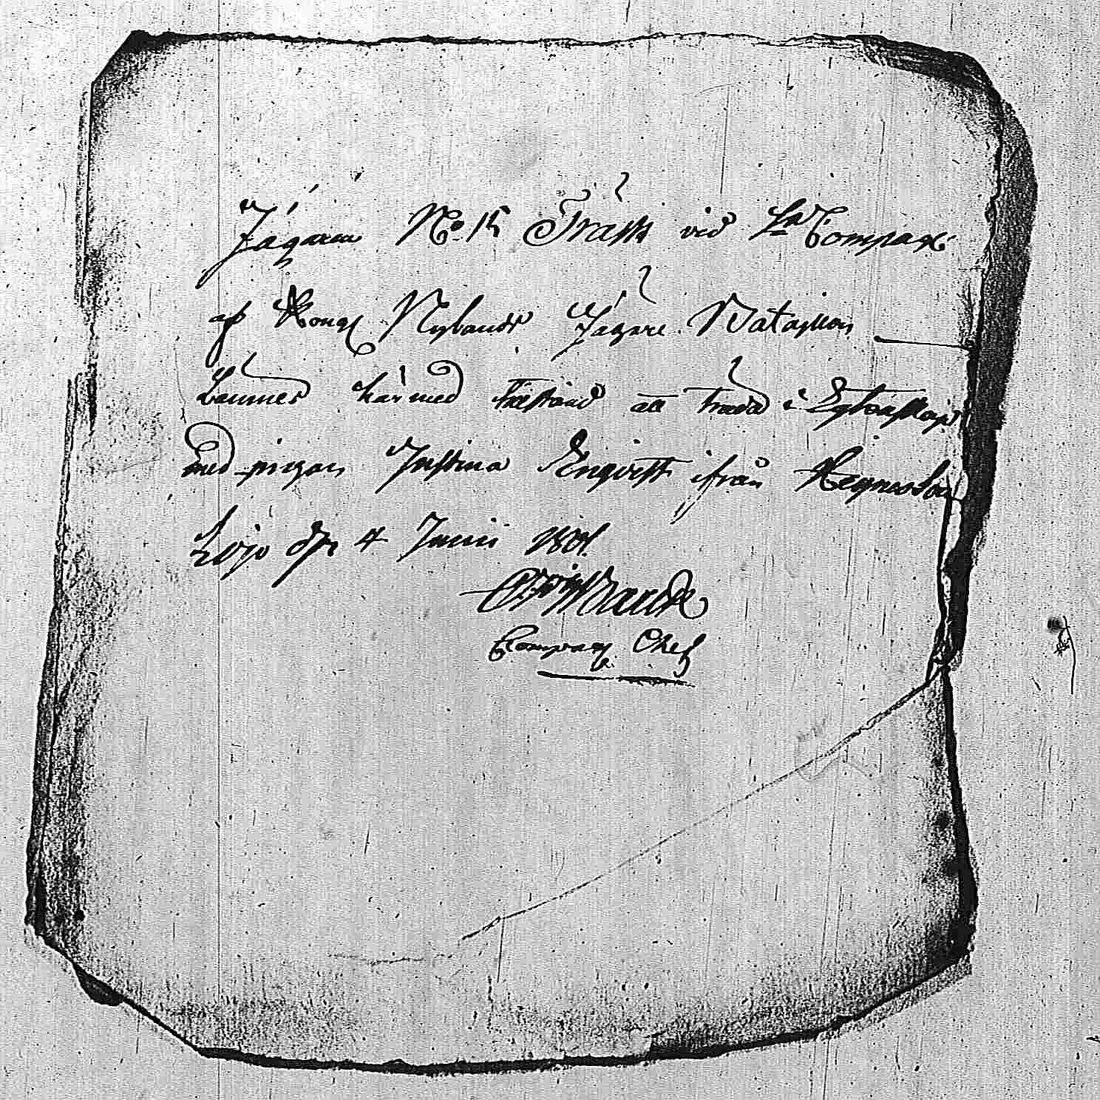 Jägaren No 15 Träsk vid Compag:
af Kongl Nylands Jägare Bataillon
Lämnes härmed tillstånd att träda i Egtenskap
med pigan Justina Engvist ifrån
Lojo d 4 Junii 1801.
Company Chef